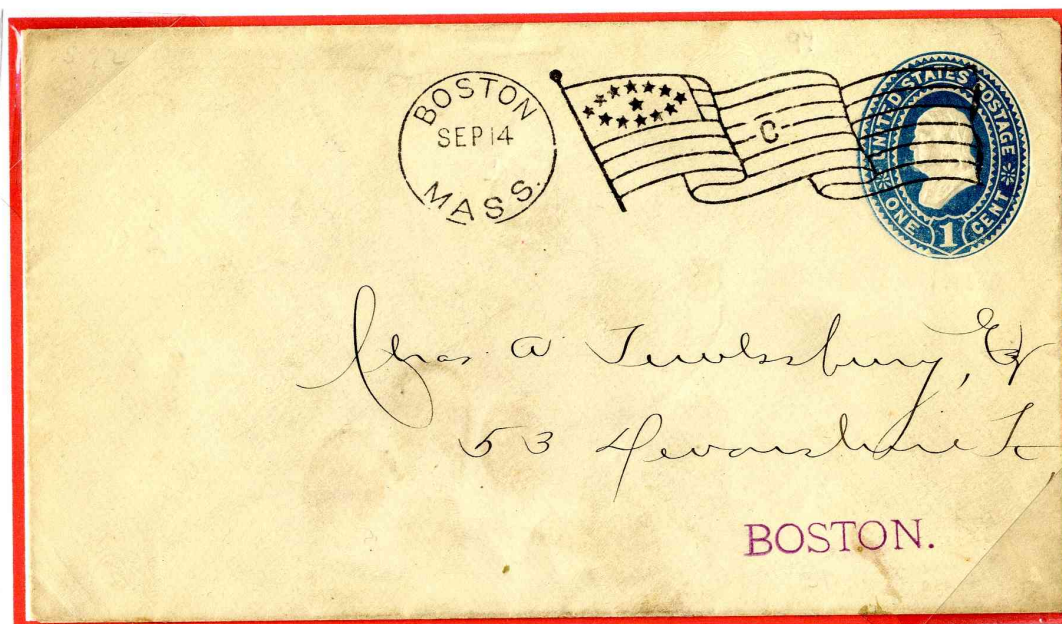 BOSTON
SEP 14
MASS.
C
UNITED STATES POSTAGE
ONE 1 CENT
Chas. A Tewksbury, Esq
53 Devonshire St
BOSTON.